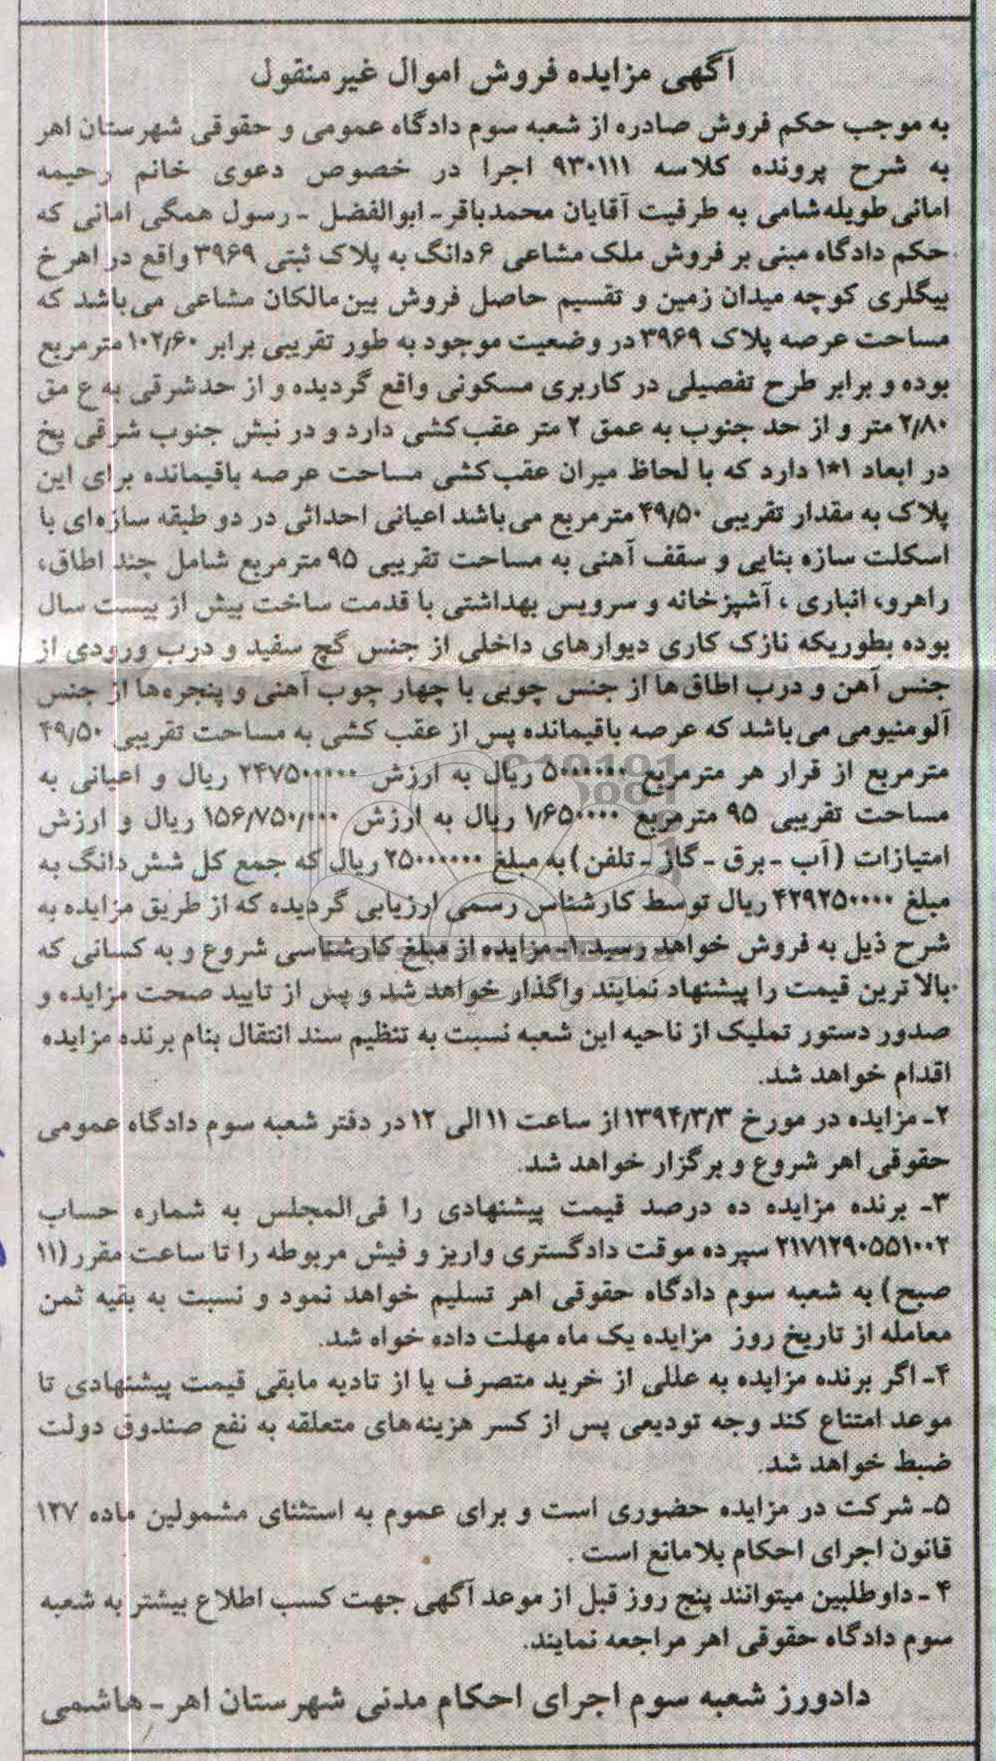 آگهی مزایده فروش اموال غیرمنقول
به موجب حکم فروش صادره از شعبه سوم دادگاه عمومی و حقوقی شهرستان اهر
به شرح پرونده کلاسه ۹۳۰۱۱۱ اجرا در خصوص دعوی خانم رحیمه
امانی طویله‌شامی به طرفیت آقایان محمدباقر- ابوالفضل - رسول همگی امانی که
حکم دادگاه مبنی بر فروش ملک مشاعی ۶ دانگ به پلاک ثبتی ۳۹۶۹ واقع در اهر خ
بیگلری کوچه میدان زمین و تقسیم حاصل فروش بین مالکان مشاعی می‌باشد که
مساحت عرصه پلاک ۳۹۶۹ در وضعیت موجود به طور تقریبی برابر ۱۰۲/۶۰ مترمربع
بوده و برابر طرح تفصیلی در کاربری مسکونی واقع گردیده و از حدشرقی به ع مق
۲/۸۰ متر و از حد جنوب به عمق ۲ متر عقب‌کشی دارد و در نبش جنوب شرقی پخ
در ابعاد ۱*۱ دارد که با لحاظ میران عقب‌کشی مساحت عرصه باقیمانده برای این
پلاک به مقدار تقریبی ۴۹/۵۰ مترمربع می‌باشد اعیانی احداثی در دو طبقه سازه‌ای با
اسکلت سازه بنایی و سقف آهنی به مساحت تقریبی ۹۵ مترمربع شامل چند اطاق،
راهرو، انباری ، آشپزخانه و سرویس بهداشتی با قدمت ساخت بیش از بیست سال
بوده بطوریکه نازک کاری دیوارهای داخلی از جنس گچ سفید و درب ورودی از
جنس آهن و درب اطاق‌ها از جنس چوبی با چهار چوب آهنی و پنجره‌ها از جنس
آلومنیومی می‌باشد که عرصه باقیمانده پس از عقب کشی به مساحت تقریبی ۴۹/۵۰
مترمربع از قرار هر مترمربع ۵۰۰۰۰۰۰ ریال به ارزش ۲۴۷۵۰۰۰۰۰ ریال و اعیانی به
مساحت تقریبی ۹۵ مترمربع ۱/۶۵۰۰۰۰ ریال به ارزش ۱۵۶/۷۵۰/۰۰۰ ریال و ارزش
امتیازات (آب - برق - گاز - تلفن) به مبلغ ۲۵۰۰۰۰۰۰ ریال که جمع کل شش دانگ به
مبلغ ۴۲۹۲۵۰۰۰۰ ریال توسط کارشناس رسمی ارزیابی گردیده که از طریق مزایده به
شرح ذیل به فروش خواهد رسید.۱- مزایده از مبلغ کارشناسی شروع و به کسانی که
بالاترین قیمت را پیشنهاد نمایند واگذار خواهد شد و پس از تایید صحت مزایده و
صدور دستور تملیک از ناحیه این شعبه نسبت به تنظیم سند انتقال بنام برنده مزایده
اقدام خواهد شد.
۲- مزایده در مورخ ۱۳۹۴/۳/۳ از ساعت ۱۱ الی ۱۲ در دفتر شعبه سوم دادگاه عمومی
حقوقی اهر شروع و برگزار خواهد شد.
۳- برنده مزایده ده درصد قیمت پیشنهادی را فی‌المجلس به شماره حساب
۲۱۷۱۲۹۰۵۵۱۰۰۲ سپرده موقت دادگستری واریز و فیش مربوطه را تا ساعت مقرر (۱۱
صبح) به شعبه سوم دادگاه حقوقی اهر تسلیم خواهد نمود و نسبت به بقیه ثمن
معامله از تاریخ روز مزایده یک ماه مهلت داده خواه شد.
۴- اگر برنده مزایده به عللی از خرید متصرف یا از تادیه مابقی قیمت پیشنهادی تا
موعد امتناع کند وجه تودیعی پس از کسر هزینه‌های متعلقه به نفع صندوق دولت
ضبط خواهد شد.
۵- شرکت در مزایده حضوری است و برای عموم به استثنای مشمولین ماده ۱۲۷
قانون اجرای احکام بلامانع است .
۴ - داوطلبین میتوانند پنج روز قبل از موعد آگهی جهت کسب اطلاع بیشتر به شعبه
سوم دادگاه حقوقی اهر مراجعه نمایند.
دادورز شعبه سوم اجرای احکام مدنی شهرستان اهر - هاشمی